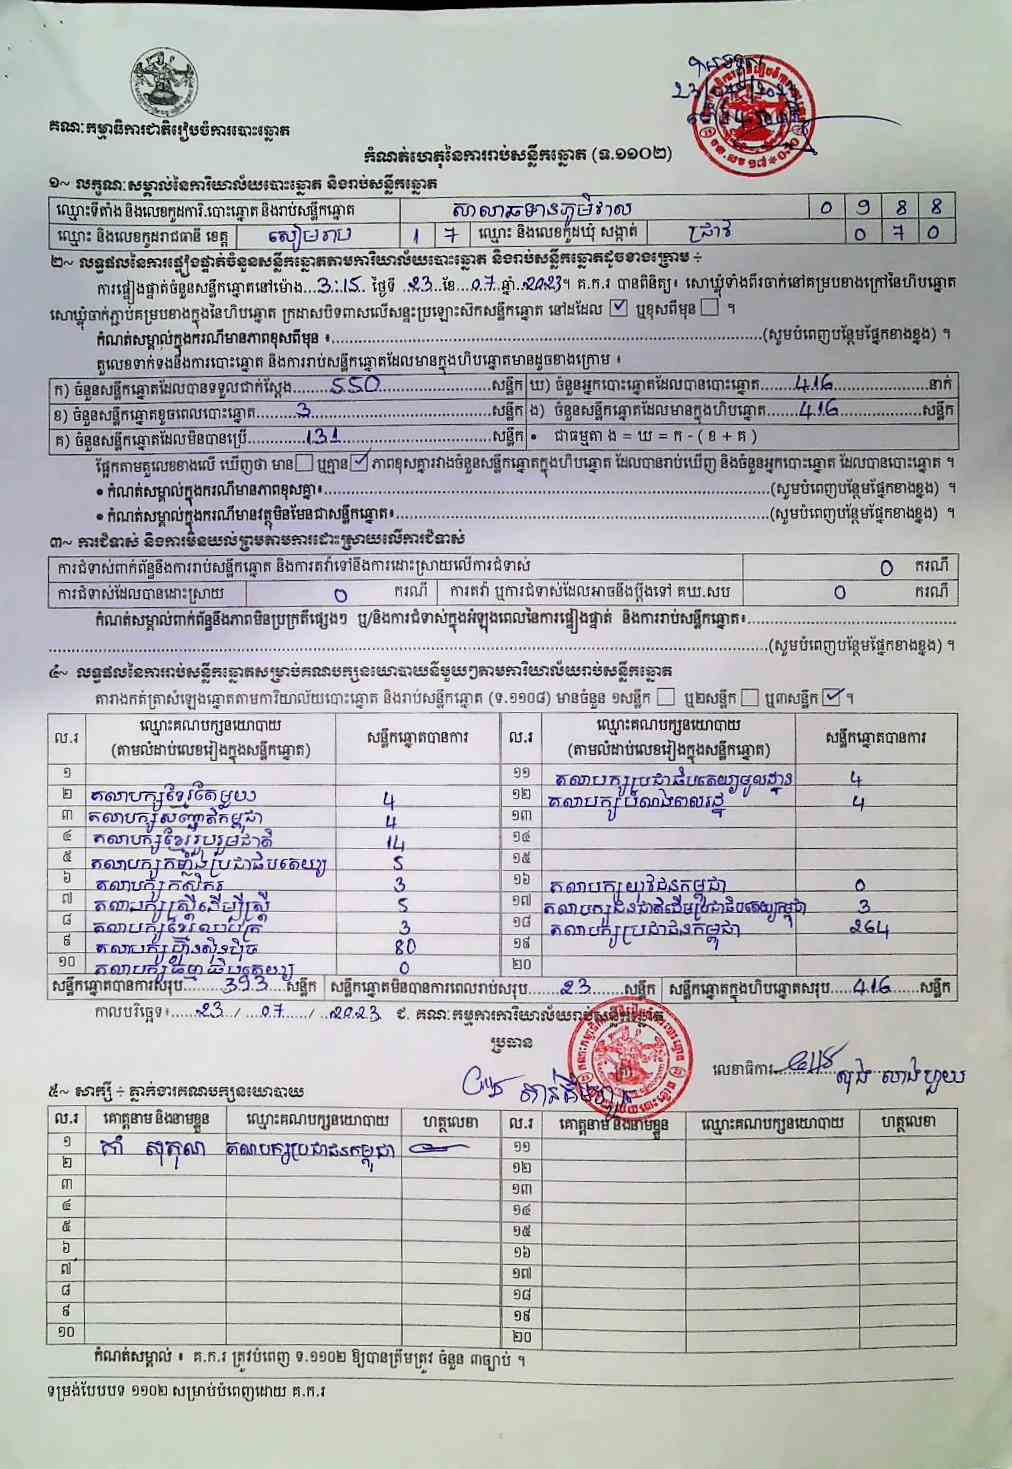 គណៈកម្មាធិការជាតិរៀបចំការបោះឆ្នោត
បានទទួល
កំណត់ហេតុនៃការរាប់សន្លឹកឆ្នោត (ទ.១១០២)
១~ លក្ខណៈសម្គាល់នៃការិយាល័យបោះឆ្នោត និងរាប់សន្លឹកឆ្នោត
ឈ្មោះទីតាំង និងលេខកូដការិ.បោះឆ្នោត និងរាប់សន្លឹកឆ្នោត សាលាឆទានភូមិវាល 0 9 8 8
ឈ្មោះ និងលេខកូដរាជធានី ខេត្ត សៀមរាប 1 7 ឈ្មោះ និងលេខកូដឃុំ សង្កាត់ ជ្រាវ 0 7 0
២~ លទ្ធផលនៃការផ្ទៀងផ្ទាត់ចំនួនសន្លឹកឆ្នោតតាមការិយាល័យបោះឆ្នោត និងរាប់សន្លឹកឆ្នោតដូចខាងក្រោម ÷
ការផ្ទៀងផ្ទាត់ចំនួនសន្លឹកឆ្នោតនៅម៉ោង...3:15. ថ្ងៃទី .23..ខែ...07..ឆ្នាំ..2023។ គ.ក.រ បានពិនិត្យ៖ សោឃ្លុំទាំងពីរចាក់នៅគម្របខាងក្រៅនៃហិបឆ្នោត
សោឃ្លុំចាក់ភ្ជាប់គម្របខាងក្នុងនៃហិបឆ្នោត ក្រដាសបិទពាសលើសន្ទះប្រឡោះស៊កសន្លឹកឆ្នោត នៅដដែល ☑ ឬខុសពីមុន ☐ ។
កំណត់សម្គាល់ក្នុងករណីមានភាពខុសពីមុន ៖..........(សូមបំពេញបន្ថែមផ្នែកខាងខ្នង) ។
តួលេខទាក់ទងនឹងការបោះឆ្នោត និងការរាប់សន្លឹកឆ្នោតដែលមានក្នុងហិបឆ្នោតមានដូចខាងក្រោម ៖
ក) ចំនួនសន្លឹកឆ្នោតដែលបានទទួលជាក់ស្តែង........550..........សន្លឹក ឃ) ចំនួនអ្នកបោះឆ្នោតដែលបានបោះឆ្នោត......416..........នាក់
ខ) ចំនួនសន្លឹកឆ្នោតខូចពេលបោះឆ្នោត........3..........សន្លឹក ង) ចំនួនសន្លឹកឆ្នោតដែលមានក្នុងហិបឆ្នោត......416..........សន្លឹក
គ) ចំនួនសន្លឹកឆ្នោតដែលមិនបានប្រើ..........131..........សន្លឹក • ជាធម្មតា ង = ឃ = ក - ( ខ + គ )
ផ្អែកតាមតួលេខខាងលើ ឃើញថា មាន ☐ ឬគ្មាន ☑ ភាពខុសគ្នារវាងចំនួនសន្លឹកឆ្នោតក្នុងហិបឆ្នោត ដែលបានរាប់ឃើញ និងចំនួនអ្នកបោះឆ្នោត ដែលបានបោះឆ្នោត ។
• កំណត់សម្គាល់ក្នុងករណីមានភាពខុសគ្នា៖..........(សូមបំពេញបន្ថែមផ្នែកខាងខ្នង) ។
• កំណត់សម្គាល់ក្នុងករណីមានវត្ថុមិនមែនជាសន្លឹកឆ្នោត៖..........(សូមបំពេញបន្ថែមផ្នែកខាងខ្នង) ។
៣~ ការជំទាស់ និងការមិនយល់ព្រមតាមការដោះស្រាយលើការជំទាស់
ការជំទាស់ពាក់ព័ន្ធនឹងការរាប់សន្លឹកឆ្នោត និងការតវ៉ាទៅនឹងការដោះស្រាយលើការជំទាស់ 0 ករណី
ការជំទាស់ដែលបានដោះស្រាយ 0 ករណី ការតវ៉ា ឬការជំទាស់ដែលអាចនឹងប្តឹងទៅ គឃ.សប 0 ករណី
កំណត់សម្គាល់ពាក់ព័ន្ធនឹងភាពមិនប្រក្រតីផ្សេងៗ ឬ/និងការជំទាស់ក្នុងអំឡុងពេលនៃការផ្ទៀងផ្ទាត់ និងការរាប់សន្លឹកឆ្នោត៖..........
..........(សូមបំពេញបន្ថែមផ្នែកខាងខ្នង) ។
៤~ លទ្ធផលនៃការរាប់សន្លឹកឆ្នោតសម្រាប់គណបក្សនយោបាយនីមួយៗតាមការិយាល័យរាប់សន្លឹកឆ្នោត
តារាងកត់ត្រាសំឡេងឆ្នោតតាមការិយាល័យបោះឆ្នោត និងរាប់សន្លឹកឆ្នោត (ទ.១១០៨) មានចំនួន ១សន្លឹក ☐ ឬ២សន្លឹក ☐ ឬ៣សន្លឹក ☑ ។
ល.រ ឈ្មោះគណបក្សនយោបាយ (តាមលំដាប់លេខរៀងក្នុងសន្លឹកឆ្នោត) សន្លឹកឆ្នោតបានការ ល.រ ឈ្មោះគណបក្សនយោបាយ (តាមលំដាប់លេខរៀងក្នុងសន្លឹកឆ្នោត) សន្លឹកឆ្នោតបានការ
១ ១១ គណបក្សប្រជាធិបតេយ្យមូលដ្ឋាន 4
២ គណបក្សខ្មែរតែមួយ 4 ១២ គណបក្សបំណងពលរដ្ឋ 4
៣ គណបក្សសញ្ជាតិកម្ពុជា 4 ១៣
៤ គណបក្សខ្មែររួបរួមជាតិ 14 ១៤
៥ គណបក្សកម្លាំងប្រជាធិបតេយ្យ 5 ១៥
៦ គណបក្សកសិករ 3 ១៦ គណបក្សយុវជនកម្ពុជា 0
៧ គណបក្សស្ត្រីដើម្បីស្ត្រី 5 ១៧ គណបក្សជនជាតិដើមប្រជាធិបតេយ្យកម្ពុជា 3
៨ គណបក្សខ្មែរឈប់ក្រ 3 ១៨ គណបក្សប្រជាជនកម្ពុជា 264
៩ គណបក្សហ៊្វុនស៊ិនប៉ិច 80 ១៩
១០ គណបក្សធម្មាធិបតេយ្យ 0 ២០
សន្លឹកឆ្នោតបានការសរុប......393.....សន្លឹក សន្លឹកឆ្នោតមិនបានការពេលរាប់សរុប......23......សន្លឹក សន្លឹកឆ្នោតក្នុងហិបឆ្នោតសរុប.....416.....សន្លឹក
កាលបរិច្ឆេទ៖......23../....07..../...2023 ជ. គណៈកម្មការការិយាល័យរាប់សន្លឹកឆ្នោត
ប្រធាន
លេខាធិការ..........
៥~ សាក្សី ÷ ភ្នាក់ងារគណបក្សនយោបាយ
ល.រ គោត្តនាម និងនាមខ្លួន ឈ្មោះគណបក្សនយោបាយ ហត្ថលេខា ល.រ គោត្តនាម និងនាមខ្លួន ឈ្មោះគណបក្សនយោបាយ ហត្ថលេខា
១ គណបក្សប្រជាជនកម្ពុជា ១១
២ ១២
៣ ១៣
៤ ១៤
៥ ១៥
៦ ១៦
៧ ១៧
៨ ១៨
៩ ១៩
១០ ២០
កំណត់សម្គាល់ ៖ គ.ក.រ ត្រូវបំពេញ ទ.១១០២ ឱ្យបានត្រឹមត្រូវ ចំនួន ៣ច្បាប់ ។
ទម្រង់បែបបទ ១១០២ សម្រាប់បំពេញដោយ គ.ក.រ